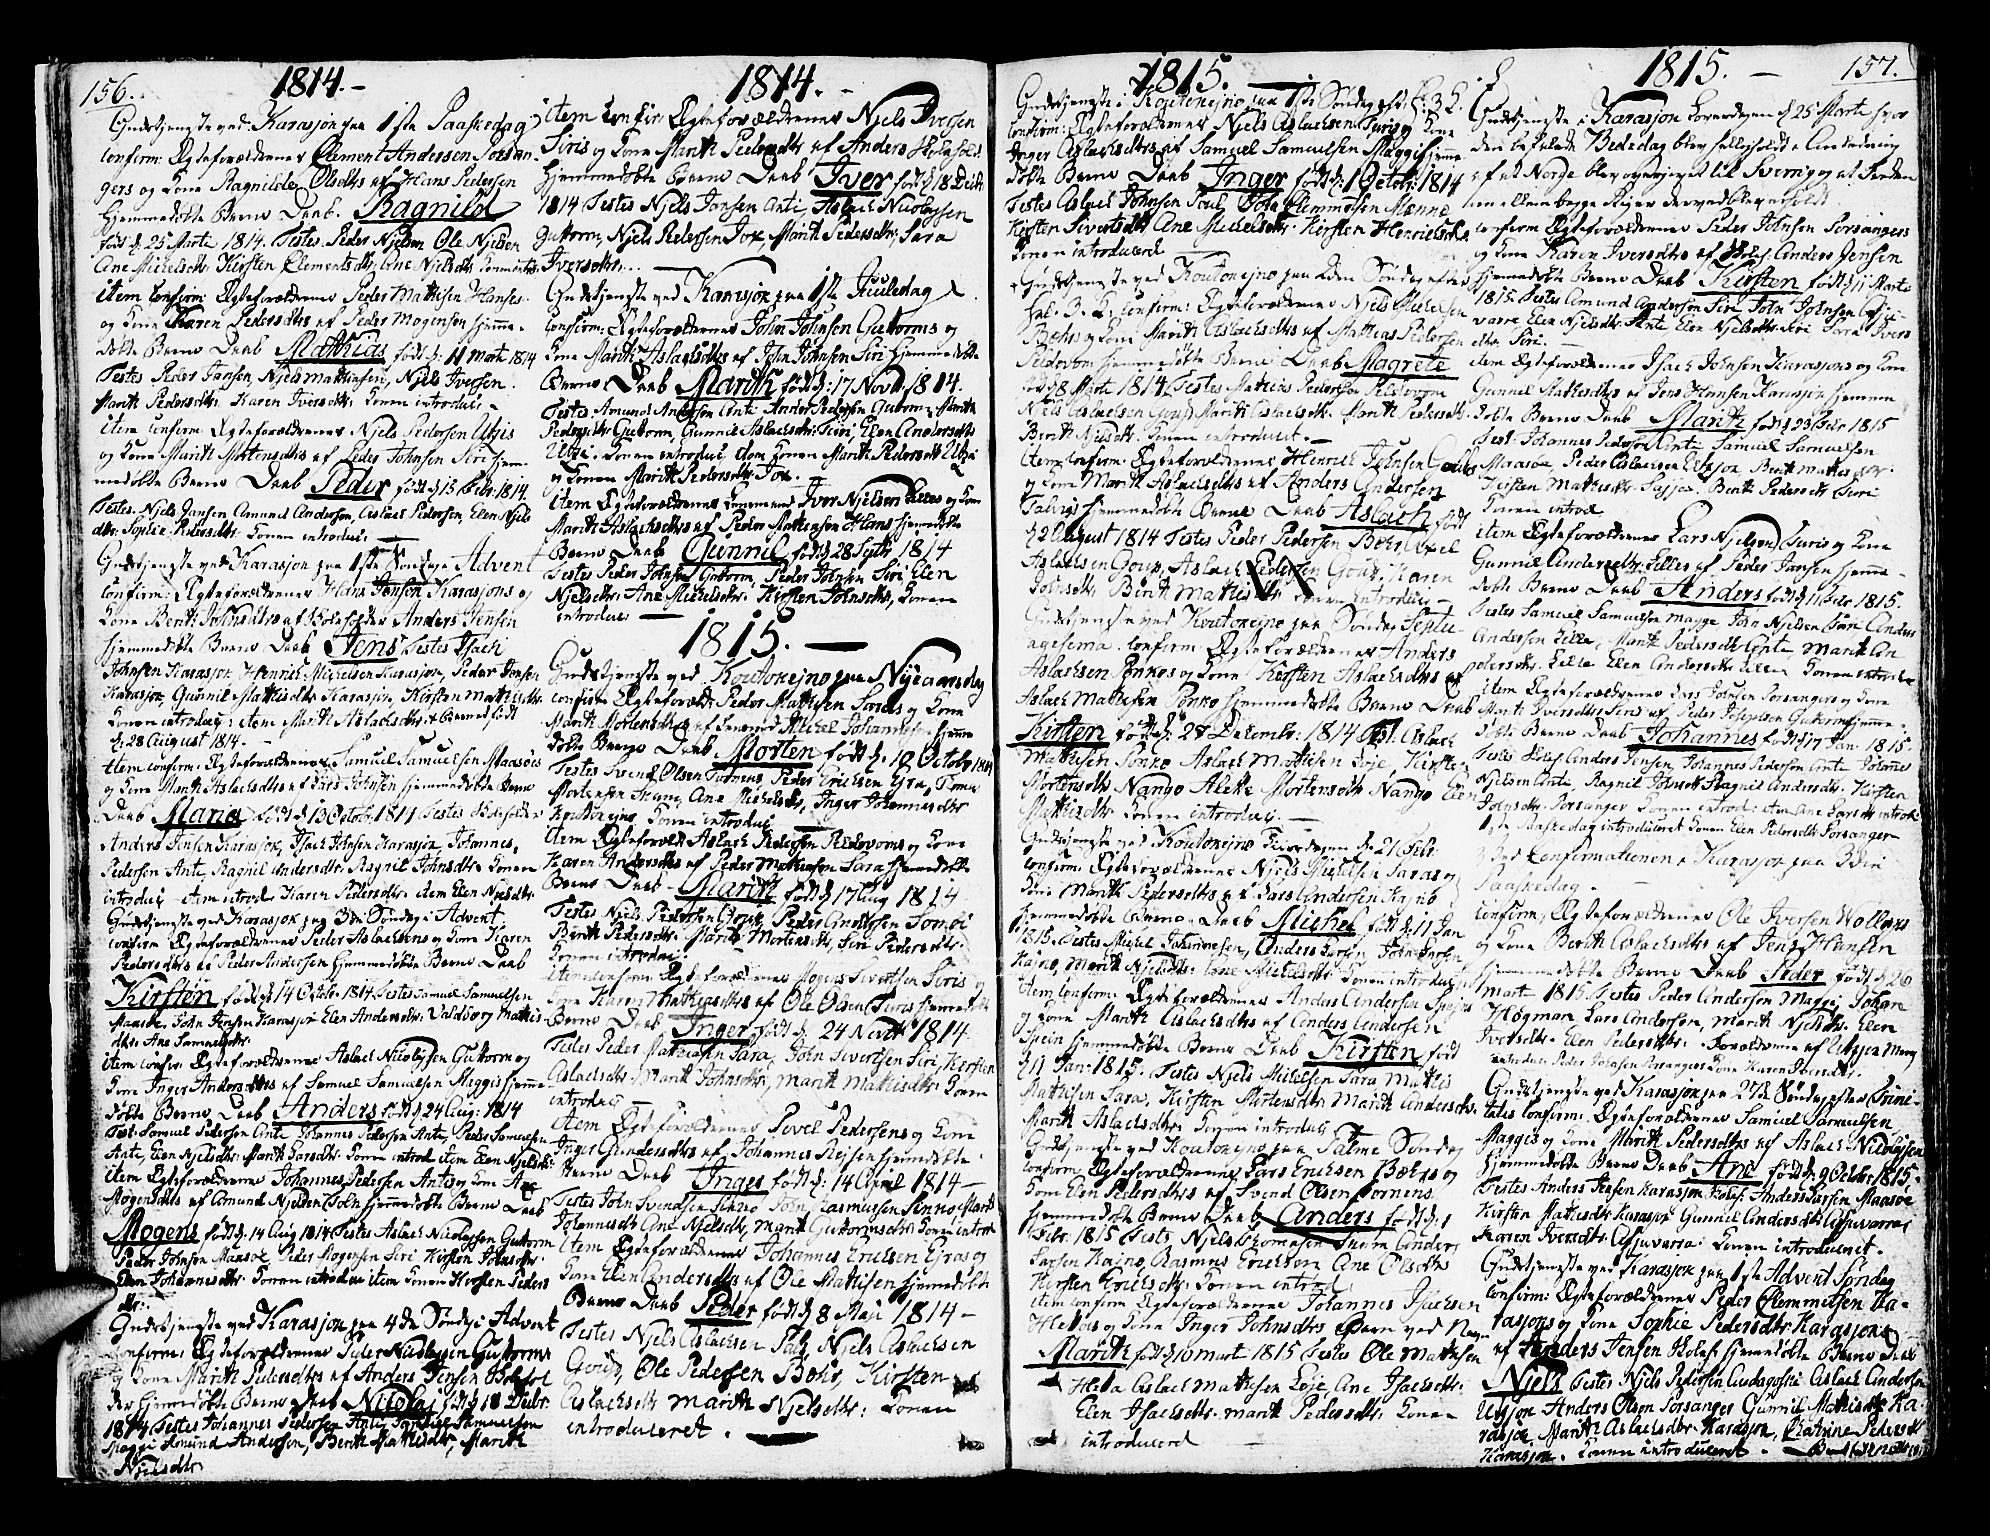 156.
1814.-
Gudstjeneste ved Karasjon paa 1ste Paaskedag
confirm: Ægteforældrene Clement Andersen Porsan-
gers og Kone Ragnilde Olsdtrs af Hans Pedersen
hjemmedøbte Barns Daab. Ragnild
født d: 25 Marts 1814. Testes Peder Njelsen Ole Njelsen
Ane Michelsdtr: Kirsten Clementsdtr, Ane Njelsdtr
item confirm: Ægteforældrene Peder Mathisen Hanses
og Kone Karen Pedersdtrs af Peder Mogensen hjemme-
døbte Barns Daab Mathias født d: 11 Mart 1814
Testes Peder Jansen, Njels Mathiesen, Njels Iversen
Marith Pedersdtr: Karen Iversdtr: Konen introduc:
item confirm: Ægteforældrene Njels Pedersen Utsis
og Kone Marith Mortensdtrs af Peder Johnsen Siri hjem-
medøbte Barns Daab Peder født d 15 Febr: 1814.
Testes Njels Jansen Amund Andersen, Aslac Pedersen, Elen Njels
dtr: Sophie Pedersdtr: Konen introduc:
Gudstjeneste ved Karasjon paa 1ste Søndag Advent
confirm: Ægteforældrene Hans Jonsen Karasjons og
Kone Berith Johnsdtrs af Skoleholder Anders Jensen
hjemmedøbte Barns Daab Jens Testes Isach
Johnsen Karasjon Henric Michelsen Karasjon, Peder Jonsen
Karasjon, Gunnil Mathisdtr: Karasjon, Kirsten Mathisdtr
Konen introduc: item Marith Aslachsdtr: Barnet født
d: 28 August 1814.-
item confirm: Ægteforældrene Samuel Samuelsen Maasøes
og Kone Marith Aslachsdtrs af Lars Johnsen hjemmedøbte Barns
Daab Maria født d 13 Octobr. 1814 Testes Skoleholder
Anders Jensen Karasjok, Isach Johnsen Karasjok, Johannes
Pedersen Ante, Ragnil Andersdtr: Ragnil Johnsdtr: Konen
introduc: item introd Karen Pedersdtr: item Elen Njelsdtr:
Gudstjeneste ved Karasjok paa 3die Søndag i Advent
confirm Ægteforældrene Peder Aslachsens og Kone Karen
Pedersdtrs af Peder Andersen hjemmedøbte Barns Daab
Kirsten født d: 14 Octobr. 1814 Testes Samuel Samuelsen
Maasøe, John Jensen Karasjon Elen Andersdtr: Mathis
dtr: Ane Samuelsdtr:
item confirm Ægteforældrene Aslac Nicolaysen Guttorm og
Kone Inger Andersdtrs af Samuel Samuelsen Maggis hjemme
døbte Barns Daab Anders født d 24 Aug: 1814
Test: Samuel Pedersen Ante Johannes Pedersen Ante, Peder Samuelsen
Ante, Elen Njelsdtr: Marith Larsdtr: Konen introd item Elen Njelsdtr:
item Ægteforældrene Johannes Pedersen Antis og Kone Ane
Mogensdtrs af Amund Njelsen hjemmedøbte Barns Daab
Mogens født d: 14 Aug 1814 Testes Aslach Nicolaysen Guttorm
Peder Johnsen Maasøe, Peder Mogensen Siri Kirsten Johnsdtr:
Elen Johannesdtr: Konen introduc item Konen Kirsten Peders
dtr:
Gudstjeneste ved Karasjon paa 4de Søndag i Advent
Confirm: Ægteforældrene Peder Nicolaysen Guttorms
og Kone Marith Pedersdtrs af Anders Jensen Skolehol
der hjemmedøbte Barns Daab Nicolai født d 18 Decbr.
1814 Testes Johannes Pedersen Ante, Samuel Samuelsen
Maggi Amund Andersen, Berith Mathisdtr, Marith
Njelsdtr

1814.-
item confir Ægteforældrenes Njels Iversen
Siris og Kone Marith Pedersdtr af Anders Skolehold:
hjemmedøbte Barns Daab Iver født d 18 Decbr
1814 Testes Njels Jonsen Anti, Aslach Nicolaysen
Guttorm, Njels Pedersen Jox, Marith Pedersdtr, Sara
Iversdtr.
Gudstjeneste ved Karasjok paa 1ste Juuledag
confirm: Ægteforældrenes John Johnsen Guttorms og
Kone Marith Aslachsdtrs af John Johnsen Siri hjemmedøbte
Barns Daab Marith født d: 17 Novbr. 1814.
Testes Amund Andersen Ante Ander Pedersen Guttorm, Marith
Pedersdtr Guttorm, Gunnil Aslachsdtr Siri, Elen Andersdtr
Utsi: Konen introduc item Konen Marith Pedersdtr Utsi
og Konen Marith Pedersdtr Jox.
item Ægteforældrenes Iver Njelsen Elles og Kone
Marith Aslachsdtrs af Peder Mathisen Hans hjemmedøbte
Barns Daab Gunnil født d 28 Septbr 1814
Testes Peder Johnsen Guttorm, Peder Johnsen Siri Elen
Njelsdtr: Ane Michelsdtr: Kirsten Johnsdtr, Konen
introduc
1815.
Gudstjeneste ved Koutokejno paa Nyeaarsdag
confirm Ægteforældre Peder Mathisen Saras og Kone
Marith Mortensdtrs af Michel Johannesen hjemme
døbte Barns Daab Morten født d. 18 Octobr 1814
Testes Svend Olsen Tornens Peder Ericksen Ejra, Thomas
Mortensen Skum, Ane Michelsdtr, Inger Johannesdtr
Koutokejno Konen introduc:
item Ægteforæld: Aslach Pedersen Peldovoms og Kone
Karen Andersdtrs af Peder Mathisen Sara hjemmedøbte
Barns Daab Marith født d 17 Aug 1814
Testes Njels Pedersen Goup, Peder Andersen Sombi
Birith Pedersdtr: Marith Mortensdtr, Siri Pedersdtr.
Konen introduc:
item confirm: Ægteforældrenes Mogens Sivertsen Siris og
Kone Karen Mathisdtrs af Ole Olsen Juris hjemmedøbte
Barns Daab Inger født d: 24 Martii 1814.
Testes Peder Mathisen Sara, John Sivertsen Siri, Kirsten
Aslachsdtr: Marith Johnsdtr; Marith Mathisdtr: Konen
introduc
item Ægteforældrenes Povel Pedersens og Kone
Inger Gundersdtrs af Johannes Nilsen hjemmedøbte
Barns Daab Inger født d: 14 April 1814 -
Testes John Svendsen John Rasmussen Marith
Johannesdtr Ane Njelsdtr, Marith Guttormsdtr: Konen introd:
item Ægteforældrenes Johannes Ericksen Ejras og
Kone Elen Andersdtrs af Ole Mathisen hjemmedøbte
Barns Daab Peder født d 8 Maji 1814 -
Testes Njels Aslachsen Pals, Njels Aslachsen
Goup, Ole Pedersen Bæhr, Kirsten
Aslachsdtr Marith Njelsdtr: Konen
introduceret.

1815. -
Gudstjeneste i Koutokejno paa 1ste Søndag
confirm: Ægteforældrenes Njels Aslachsen Juris og Kone
Inger Aslachsdtrs af Samuel Samuelsen Maggis hjemme
døbte Barns Daab Inger født d. 1 Octobr: 1814
Testes Aslach Johnsen Povl John Clemmetsen Mænne
Kirsten Sivertsdtr Ane Michelsdtr: Kirsten Henricksdtr.
Konen introducerd
Gudstjeneste ved Koutokejno paa 2den Søndag efter
Hel. 3. K. confirm: Ægteforældrenes Njels Michelsen
Bæhrs og Kone Marith Aslachsdtrs af Mathias Pedersen
Peldovom hjemmedøbte Barns Daab Magrete
født 8 Mart. 1814 Testes Mathias Pedersen Peldovom
Njels Aslachsen Goup, Marith Aslachsdtr. Marith Pedersdtr.
Berith Njelsdtr. Konen introducet. -
item confirm: Ægteforældrenes Henrich Johnsen
og Kone Marith Aslachsdtrs af Anders Andersen
hjemmedøbte Barns Daab Aslach født
d 2 August 1814 Testes Peder Pedersen Bæhr Axel
Aslachsen Goup, Aslach Pedersen Goup, Karen
Johnsdtr. Birith Mathisdtr Konen introduc: -
Gudstjeneste ved Koutokejno paa Søndag Septu-
agesima. confirm: Ægteforældrenes Anders
Aslachsen Ponkos og Kone Kirsten Aslachsdtrs af
Aslach Mathisen Ponko hjemmedøbte Barns Daab
Kirsten født d: 27 December: 1814 Test. Aslach
Mathisen Ponko Aslach Mathisen Loje, Kirsten
Mortensdtr Nango Aleke Mortensdtr Nango Elen
Mathisdtr Konen introduc:
Gudstjeneste ved Koutokejno Freiredagen d. 21 Febr
confirm: Ægteforældrenes Njels Michelsen Saras og
Kone Marith Pedersdtrs af Lars Andersen Kajno
hjemmedøbte Barns Daab Michel født d: 11 Jan
1815. Testes Michel Johannesen, Anders Larsen John Larsen
Kajno, Marith Njelsdtr: Ane Michelsdtr: Konen introduceret
item confirm: Ægteforældrenes Anders Andersen Spejns
og Kone Marith Aslachsdtrs af Anders Andersen
Spein hjemmedøbte Barns Daab Kirsten født
d 11 Jan: 1815. Testes Njels Michelsen Sara Mathis
Mathisen Sara, Kirsten Mortensdtr: Marith Andersdtr.
Marith Aslachsdtr: Konen introduc:
Gudstjeneste ved Koutokejno paa Palme Søndag
confirm: Ægteforældrenes Lars Ericksen Bæhrs og
Kone Elen Pedersdtrs af Svend Olsen Tornens
hjemmedøbte Barns Daab Anders født d: 1
Febr: 1815 Testes Njels Thomesen Skum Anders
Larsen Kajno, Rasmus Ericksen Ane Olsdtr
Kirsten Ericksdtr: Konen introd
item confirm Ægteforældrenes Johannes Isachsen
Hettas og Kone Inger Johnsdtrs Barn ved Navn
Marith født d 10 Mart 1815 Testes Ole Mathisen
Hetta Aslach Mathisen Loje, Ane Isachsdtr:
Elen Isachsdtr. Marith Pedersdtr: Konen
introducerd

1815. -
157.
Gudstjeneste i Karasjon Løverdagen d 25 Marts hvor
den befalede Bededag blev helligholdt i Anledning
af at Norge blev overgivet til Sverrig og at Freden
imellem begge Riger derved blev
confirm Ægteforældrenes Peder Johnsen Porsangers
og Kone Karen Iversdtrs af Skolef: Anders Jensen
hjemmedøbte Barns Daab Kirsten født d 11 Marts
1815. Testes Amund Andersen Siri John Johnsen
varre Elen Njelsdtr: Ante Elen Njelsdtr Siri Sara Ivers
dtr Siri.
item Ægteforældrenes Isach Johnsen Karasjons og Kone
Gunnil Mathisdtrs af Jens Hansen Karasjon hjemme
døbte Barns Daab Marith født d 23 Febr 1815
Test. Johannes Pedersen Anti Samuel Samuelsen
Maasøe, Peder Aslachsen Berith Mathisdtr.
Kirsten Mathisdtr Berith Pedersdtr Siri
Konen introd
item Ægteforældrenes Lars Njelsen Juris og Kone
Gunnil Andersdtrs Elles af Peder Jansen hjemme-
døbte Barns Daab Anders født d 11 Febr 1815.
Testes Samuel Samuelsen Magge John Njelsen Anders
Andersen Elle, Marith Pedersdtr Ante Marith An
dersdtr: Elle Elen Andersdtr Elle Konen introduc
item Ægteforældrenes Lars Johnsen Porsangers og Kone
Marith Iversdtr Siris af Peder Josephsen Guttorm hjemme-
døbte Barns Daab Johannes født d 17 Jan. 1815.
Testes Skolef: Anders Jensen, Johannes Pedersen Ante Johannes
Njelsen Ante, Ragnil Johnsdtr Ragnil Andersdtr. Kirsten
Johnsdtr. Porsanger Konen introd: item Ane Larsdtr introd:
1ste Paaskedag introduceret Konen Elen Pedersdtr Porsanger
ved confirmationen i Karasjon paa 2den
Paaskedag. -
confirm: Ægteforældrenes Ole Iversen Wollans
og Kone Berith Aslachsdtrs af Jens Hansen
hjemmedøbte Barns Daab Peder født d 26
Mart: 1815. Testes Peder Andersen Magge, Johan
Høgman Lars Andersen, Marith Njelsdtr. Elen
Ivarsdtr. Elen Pedersdtr: Forældrene af Utsjok Menig
Gudstjeneste ved Karasjon paa 27de Søndag efter Trini-
tatis confirm: Ægteforældrenes Samuel Samuelsen
Maggis og Kone Marith Pedersdtrs af Aslach Nicolaysen
hjemmedøbte Barns Daab Ane født d. 9 Octobr 1815.
Testes Anders Jensen Karasjon Skolef: Anders Larsen Maasøe
Kirsten Mathisdtr Karasjon Gunnil Andersdtr Assuvarra
Karen Iversdtr: Assuvarra: Konen introduceret.
Gudstjeneste ved Karasjok paa 1ste Advent Søndag
confirm: Ægteforældrenes Peder Clemmetsen Ka-
rasjons og Kone Sophie Pedersdtr Karasjons
af Anders Jensen Skolef: hjemmedøbte Barns Daab
Njels Testes Njels Pedersen Aslach Andersen
Utsjon Anders Olsen Porsanger Gunnil Mathisdtr Ka-
rasjok, Marith Aslachsdtr Karasjon, Cathrine Pedersdtr
Karasjon. Konen introduceret -